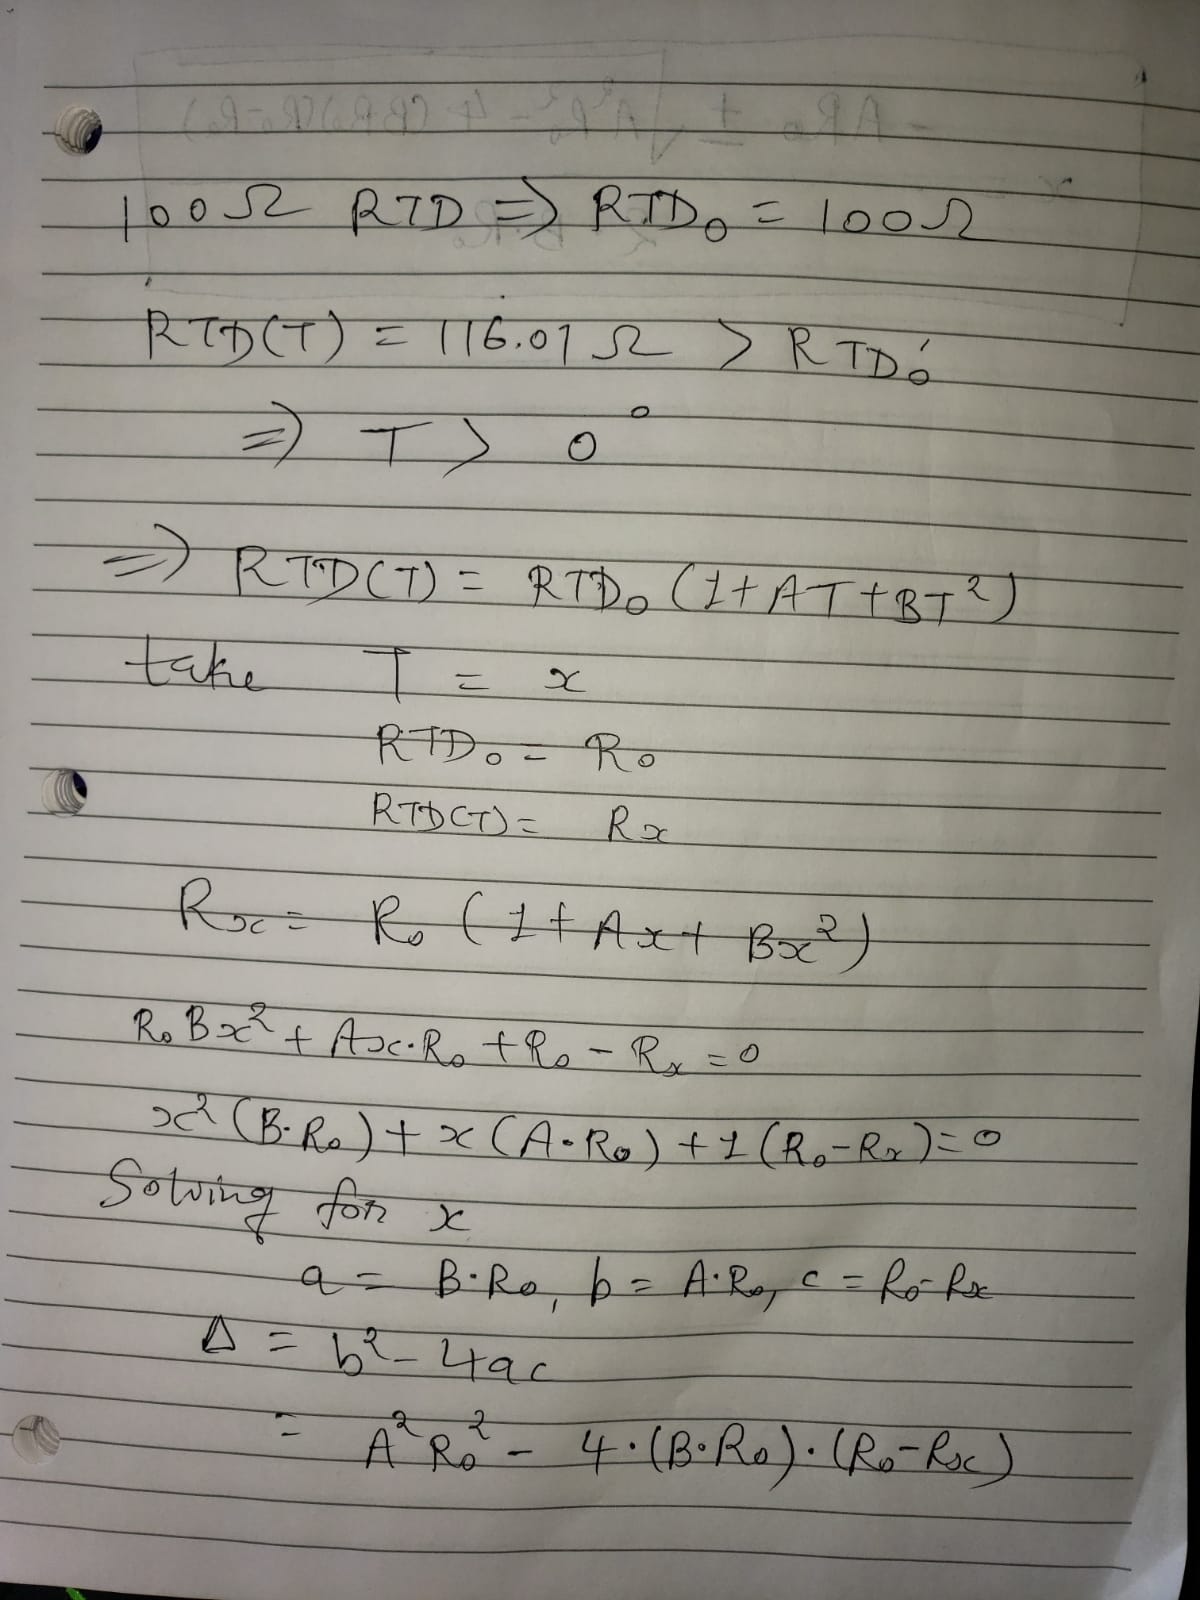 100Ω RTD ⇒ RTD₀ = 100Ω
RTD(T) = 116.07 Ω > RTD₀
⇒ T > 0°
⇒ RTD(T) = RTD₀ (1+AT+BT²)
take T = x
RTD₀ = R₀
RTD(T) = Rx
Rx = R₀ (1+Ax+Bx²)
R₀Bx² + Ax·R₀ + R₀ - Rx = 0
x² (B·R₀) + x (A·R₀) + 1 (R₀-Rx) = 0
Solving for x
a = B·R₀, b = A·R₀, c = R₀-Rx
Δ = b² - 4ac
= A²R₀² - 4·(B·R₀)·(R₀-Rx)